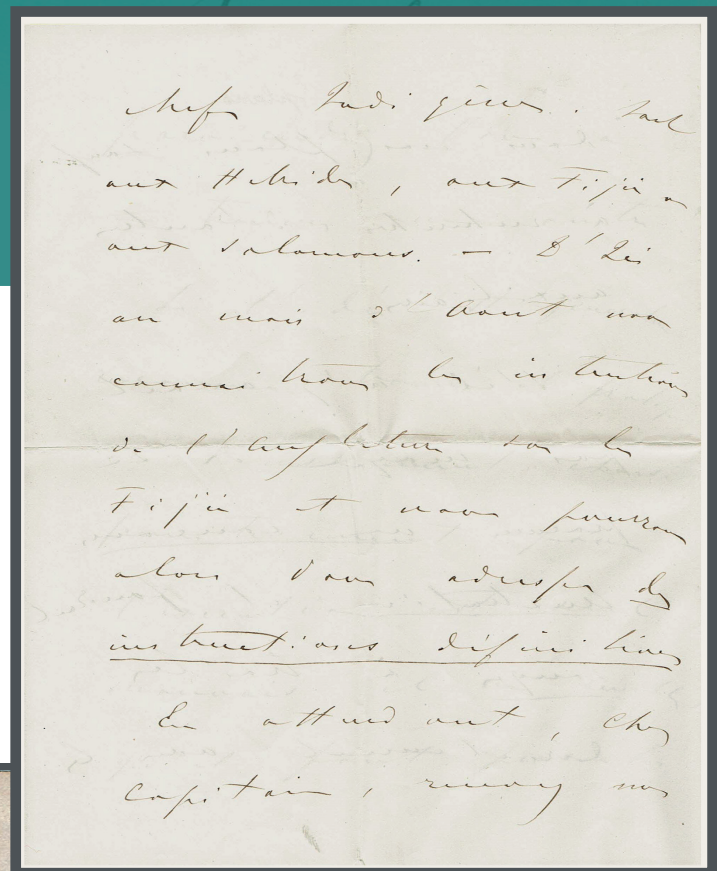 chefs Indigènes. Tant
aux Hébrides, aux Fijii
aux Salomons. — D'ici
au mois d'Aout nous
connaitrons les intentions
de l'Angleterre sur les
Fijii et nous pourrons
alors vous adresser des
instructions définitives
En attendant, cher
capitaine, recevez nos